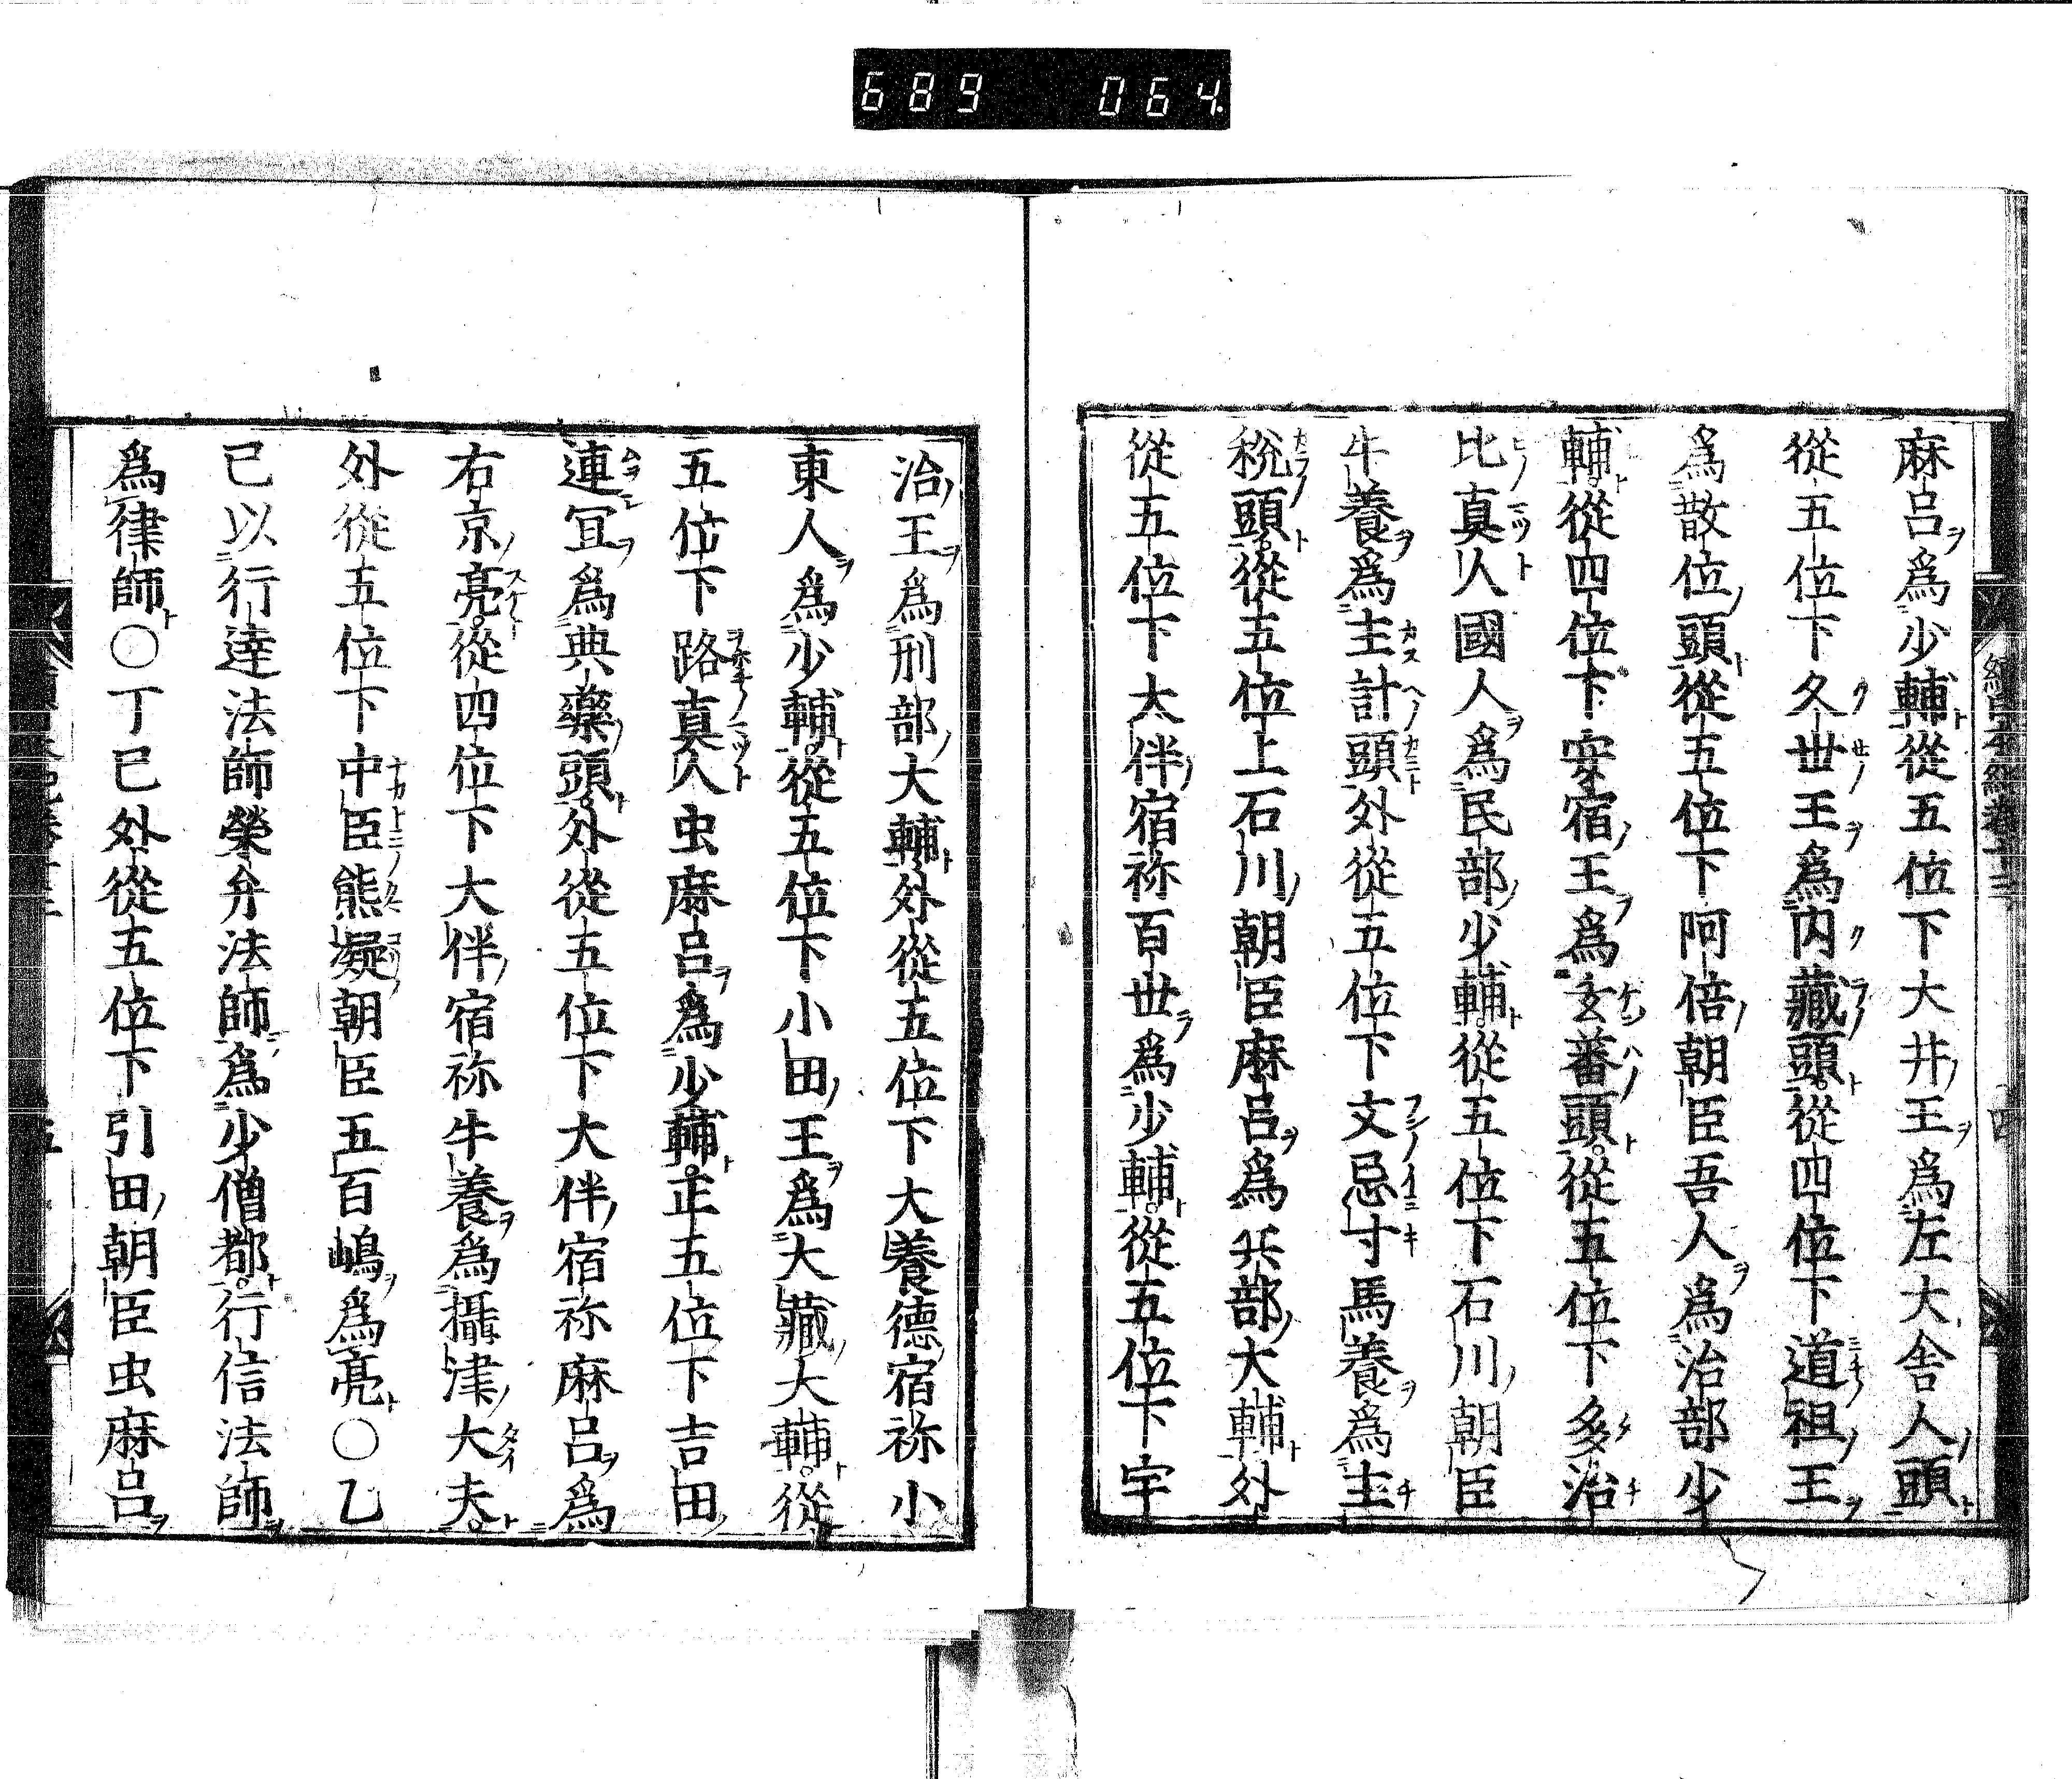 689 064
麻呂爲少輔從五位下大井王爲左大舍人頭
從五位下久世王爲内藏頭從四位下道祖王
爲散位頭從五位下阿倍朝臣吾人爲治部少
輔從四位下安宿王爲玄蕃頭從五位下多治
比真人國人爲民部少輔從五位下石川朝臣
牛養爲主計頭外從五位下文忌寸馬養爲主
税頭從五位上石川朝臣麻呂爲兵部大輔外
從五位下大伴宿祢百世爲少輔從五位下宇
治王爲刑部大輔外從五位下大養德宿祢小
東人爲少輔從五位下小田王爲大藏大輔從
五位下路真人虫麻呂爲少輔正五位下吉田
連冝爲典藥頭外從五位下大伴宿祢麻呂爲
右京亮從四位下大伴宿祢牛養爲攝津大夫
外從五位下中臣熊凝朝臣五百嶋爲亮〇乙
已以行達法師榮弁法師爲少僧都行信法師
爲律師〇丁巳外從五位下引田朝臣虫麻呂